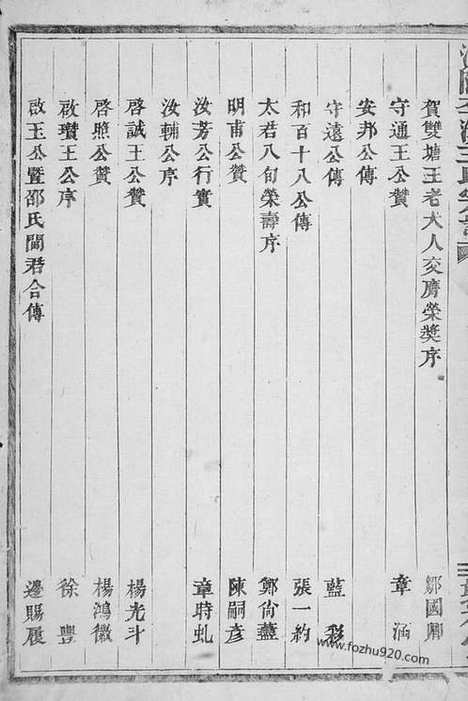 賀雙塘王老大人交膺榮獎序 鄒國
守通王公贊 章涵
安邦公傳
守遠公傳 藍彩
和百十八公傳 張一約
太君八旬榮壽序 鄭尙藎
明甫公贊 陳嗣彥
汝芳公行實 章時虬
汝輔公序
啓誠王公贊 楊光斗
啓照公贊 楊鴻徽
啟瓚王公序 徐豐
啟玉公暨邵氏閫君合傳 邊賜履
www.fozhu920.com